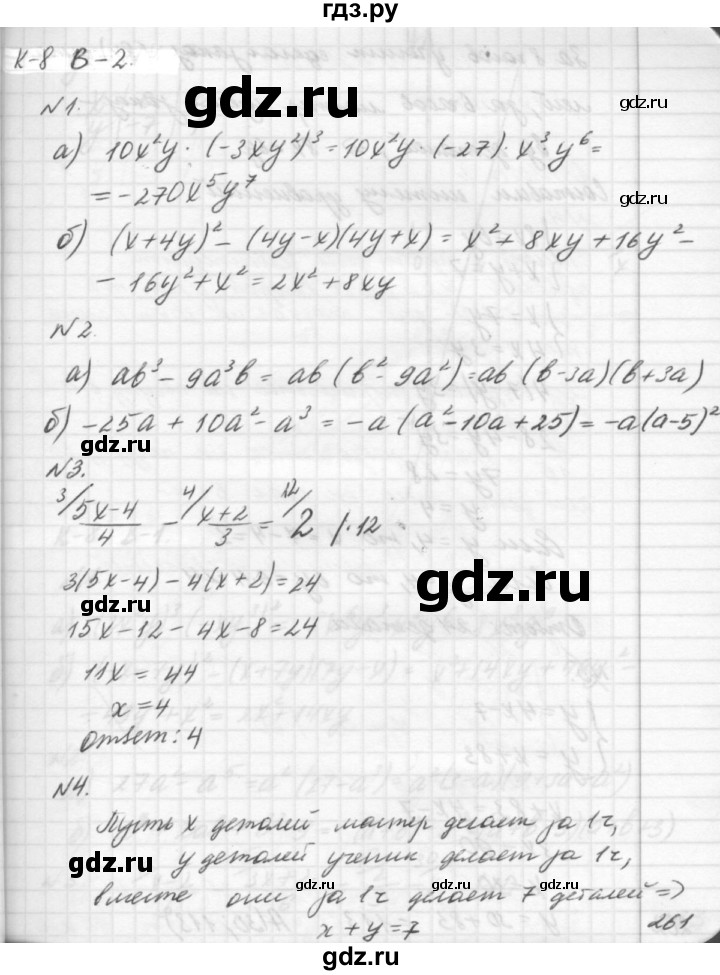 гдз.ру
К-8 В-2.
gdz.ru
№1.
gdz.ru
а) 10x²y · (-3xy²)³ = 10x²y · (-27) · x³y⁶ =
= -270x⁵y⁷
gdz.ru
б) (x+4y)² - (4y-x)(4y+x) = x² + 8xy + 16y² -
- 16y² + x² = 2x² + 8xy
№2.
gdz.ru
а) ab³ - 9a³b = ab (b² - 9a²) = ab (b-3a)(b+3a)
б) -25a + 10a² - a³ = -a (a² - 10a + 25) = -a(a-5)²
gdz.ru
№3.
³/ 5x-4/4 - ⁴/ x+2/3 = ¹²/ 2 | · 12
gdz.ru
3(5x-4) - 4(x+2) = 24
gdz.ru
15x - 12 - 4x - 8 = 24
11x = 44
x = 4
gdz.ru
Ответ: 4
№4.
Пусть x деталей мастер делает за 1ч,
y деталей ученик делает за 1ч,
gdz.ru
вместе они за 1ч делает 7 деталей =>
gdz.ru
x + y = 7
261